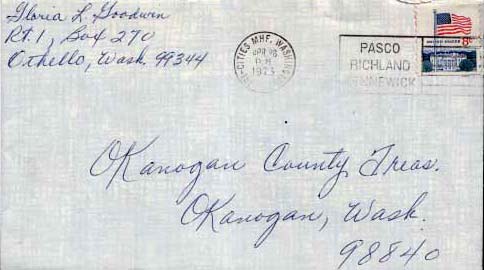 Gloria L. Goodwin
Rt. 1, Box 270
Othello, Wash. 99344
TRI-CITIES MHF, WASHINGTON
PM
1973
PASCO
RICHLAND
KENNEWICK
8c
Okanogan County Treas.
Okanogan, Wash.
98840